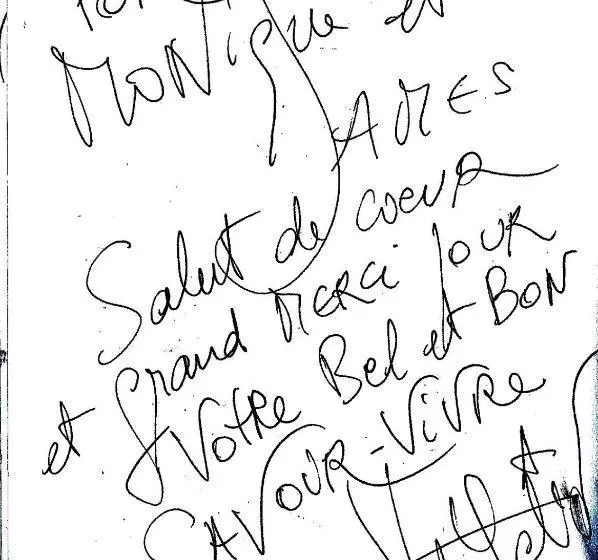 MONique et
JAMES
Salut de coeur
et grand MERCi pour
VotRe Bel et BON
SAVOUR-ViVRe